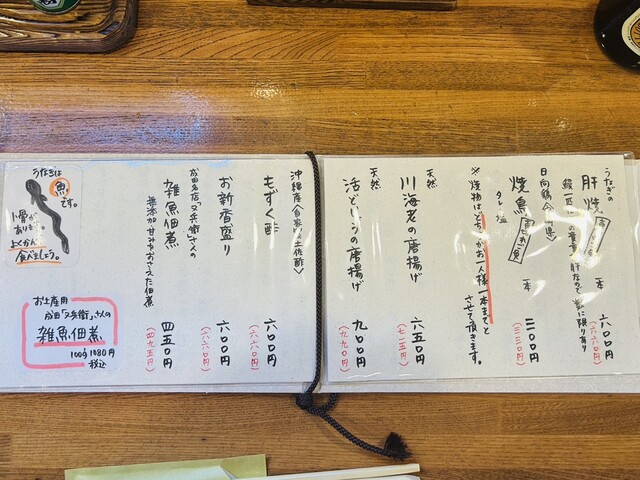 うなぎの
肝焼 一本 六〇〇円
(六六〇円)
鰻一匹に一つの貴重な肝なので数に限り有り
日向鶏(宮崎県)
焼鳥 タレ 塩 一本 三〇〇円
(三三〇円)
※焼物はどちらかお一人様一本までと
させて頂きます。
天然
川海老の唐揚げ 六五〇円
(七一五円)
天然
活どじょうの唐揚げ 九〇〇円
(九九〇円)
沖縄産(自家製土佐酢)
もずく酢 六〇〇円
(六六〇円)
お新香盛り 六〇〇円
(六六〇円)
成田名店「又兵衛」さんの
雑魚佃煮 四五〇円
(四九五円)
無添加甘みをおさえた佃煮
うなぎは
魚です。
小骨が
あります。
よくかんで
食べましょう。
お土産用
成田「又兵衛」さんの
雑魚佃煮
100g 1080円
税込